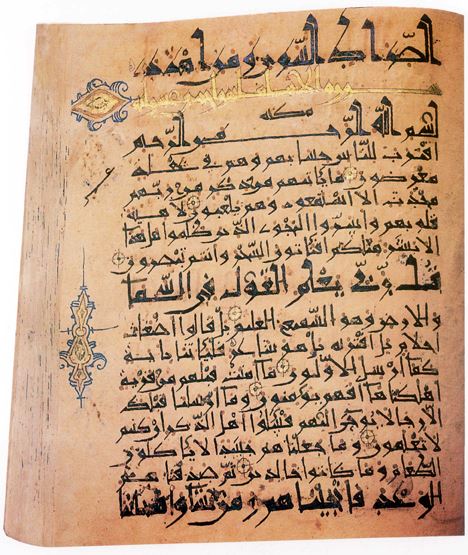 الصراط السوي ومن اهتدى
مكية
بسم الله الرحمن الرحيم
اقترب للناس حسابهم وهم في غفلة
معرضون ما ياتيهم من ذكر من ربهم
محدث الا استمعوه وهم يلعبون لاهية
قلوبهم واسروا النجوى الذين ظلموا هل هذا
الا بشر مثلكم افتاتون السحر وانتم تبصرون
قل ربي يعلم القول في السما
والارض وهو السميع العليم بل قالوا اضغاث
احلام بل افتريه بل هو شاعر فلياتنا باية
كما ارسل الاولون ما امنت قبلهم من قرية
اهلكناها افهم يؤمنون وما ارسلنا قبلك
الا رجالا نوحي اليهم فسئلوا اهل الذكر ان كنتم
لا تعلمون وما جعلناهم جسدا لا ياكلون
الطعام وما كانوا خالدين ثم صدقناهم
الوعد فانجيناهم ومن نشا واهلكنا